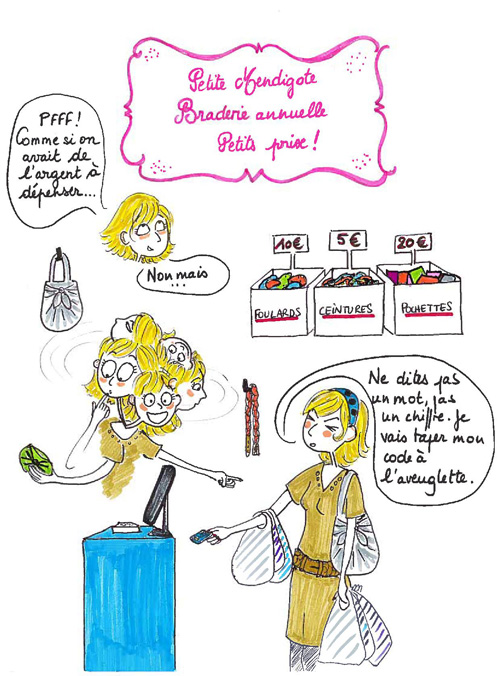 Petite Mendigote
Braderie annuelle
Petits prix !
PFFF !
Comme si on
avait de
l'argent à
dépenser...
Non mais
...
10€
5€
20€
FOULARDS
CEINTURES
POCHETTES
Ne dites pas
un mot, pas
un chiffre. Je
vais taper mon
code à
l'aveuglette.